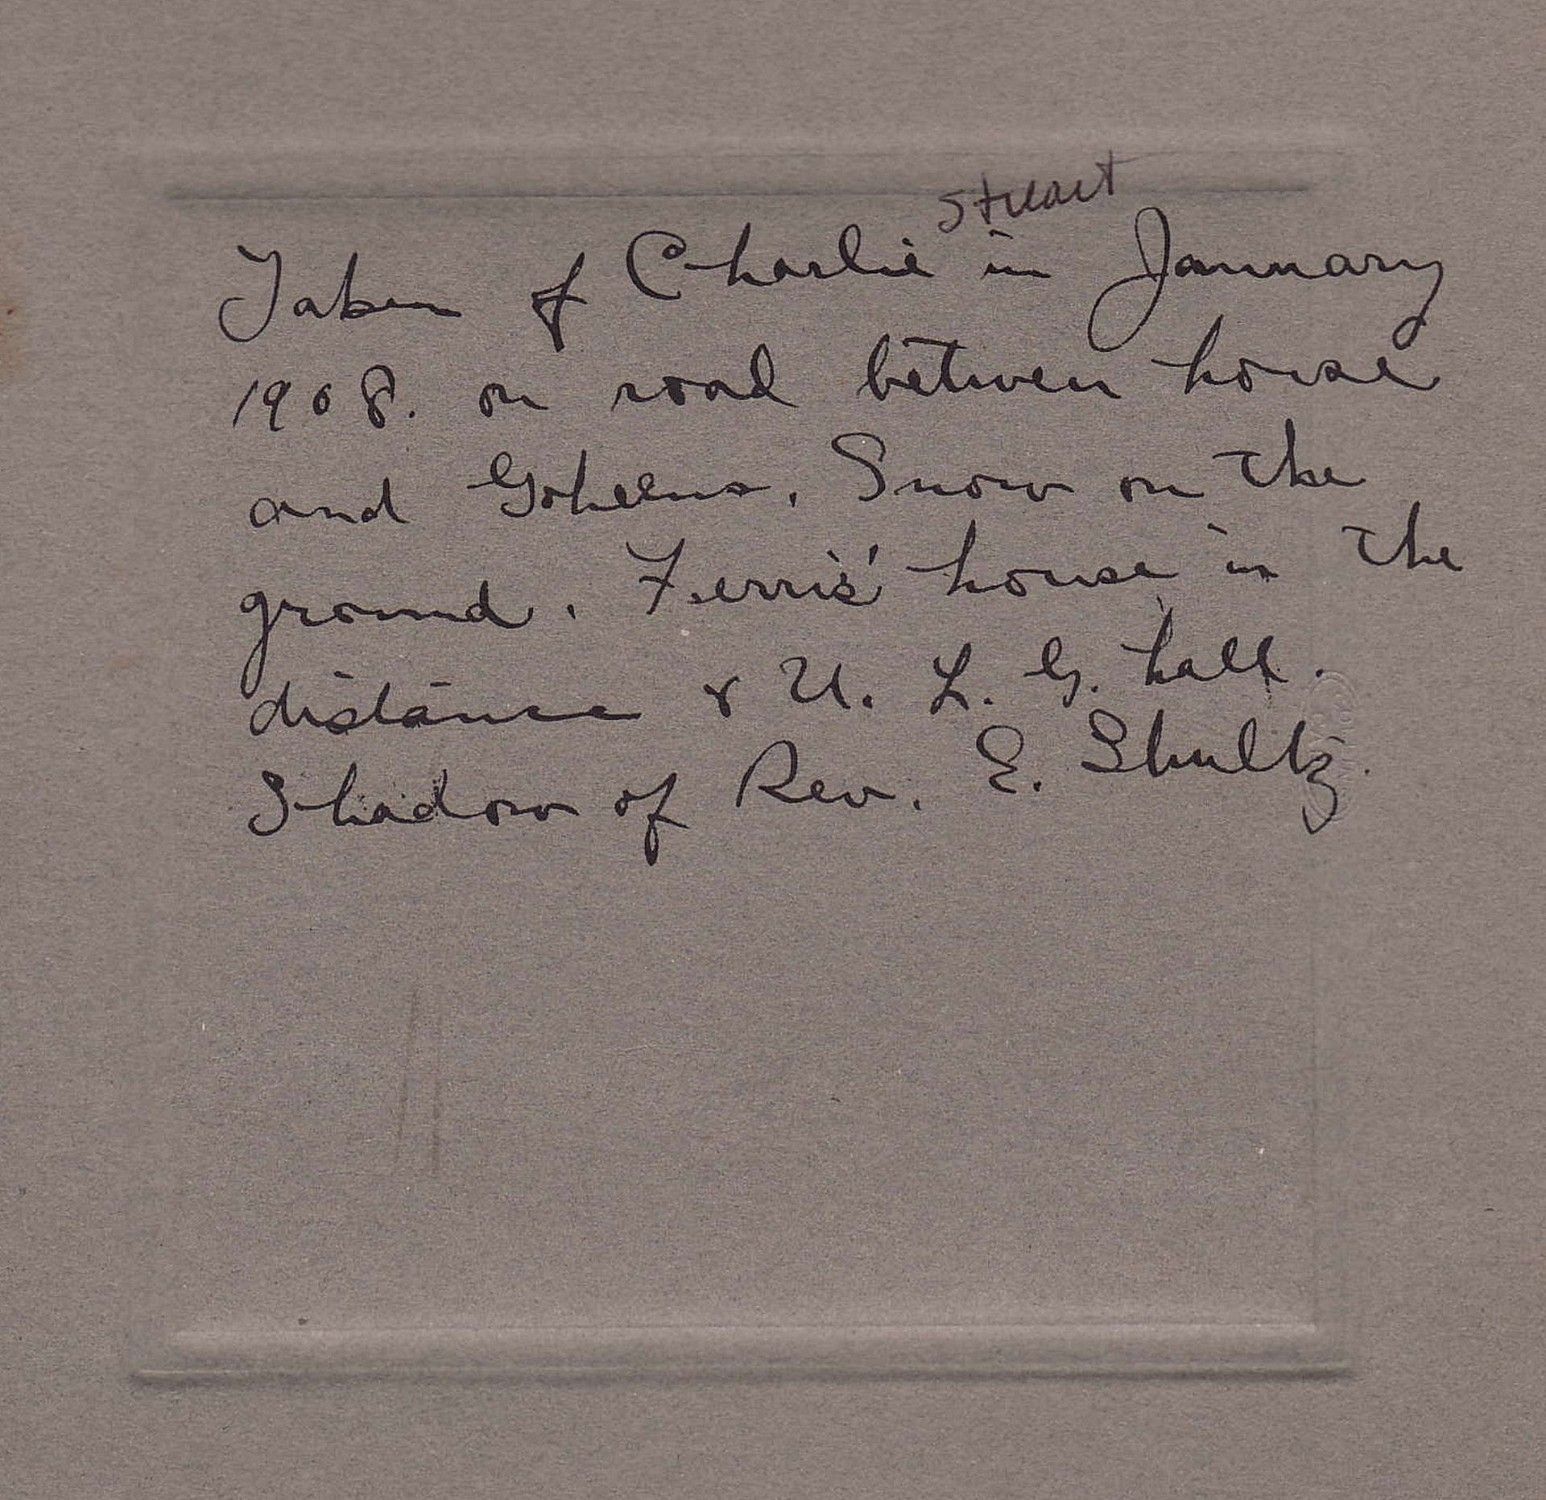 Stuart
Taken of Charlie in January
1908. on road between house
and Goheens. Snow on the
ground. Ferris' house in the
distance & U. L. G. hall.
Shadow of Rev. E. Shultz.